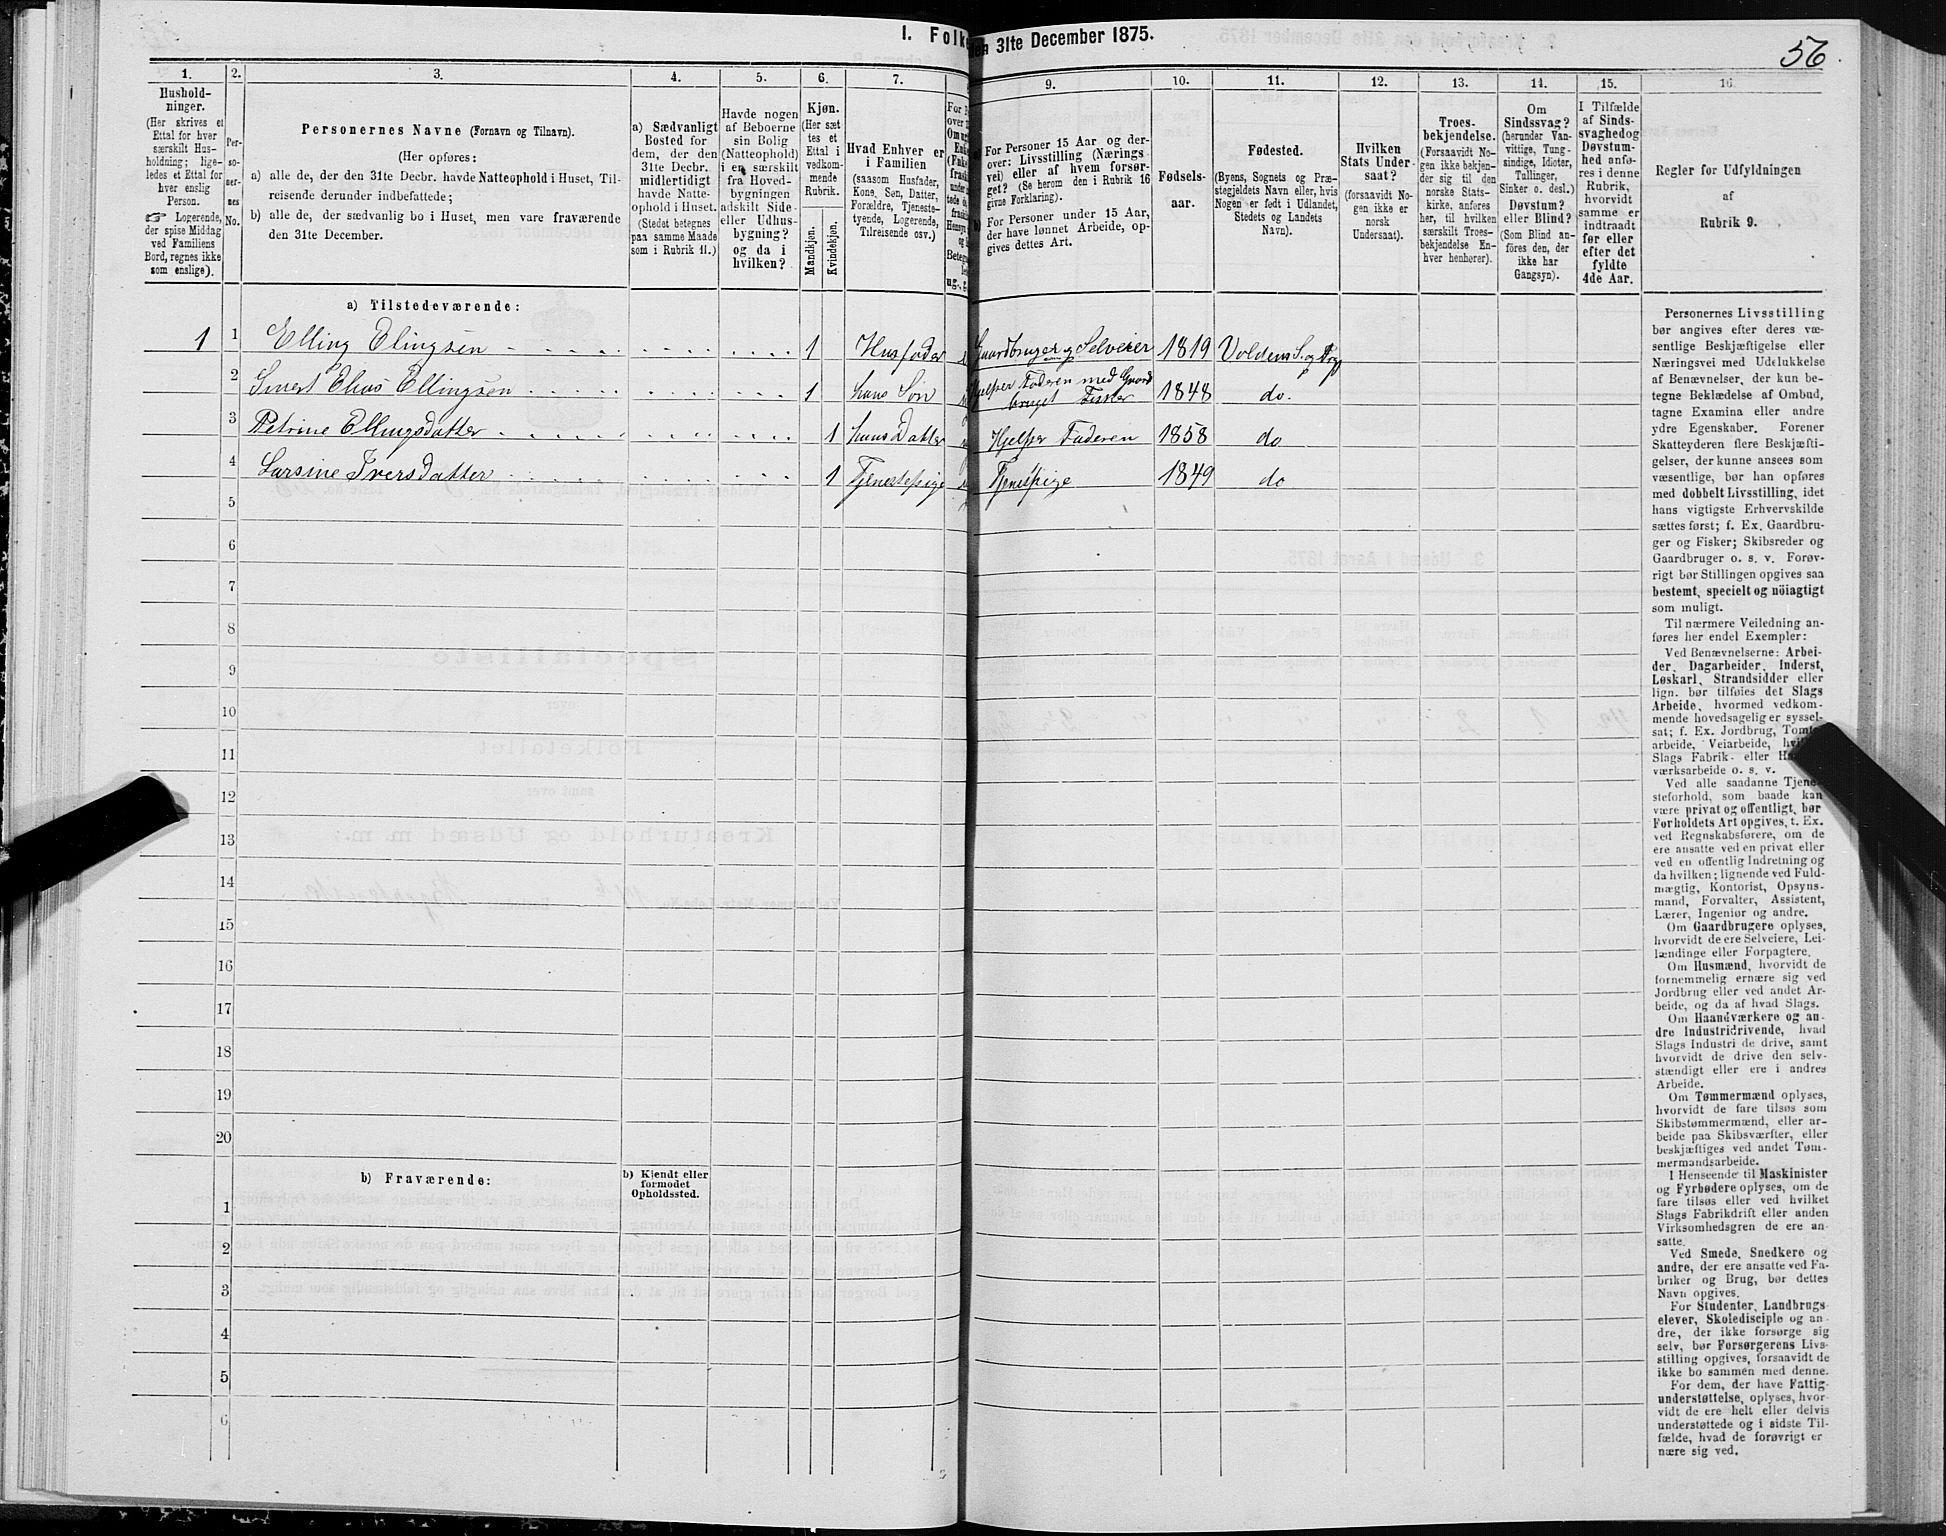 I. Folke
den 31te December 1875.
56
1. 2. 3. 4. 5. 6. 7. 9. 10. 11. 12. 13. 14. 15. 16
Hushold-
ninger.
(Her skrives et
Ettal for hver
særskilt Hus-
holdning; lige-
ledes et Ettal for
hver enslig
Person.
☞ Logerende,
der spise Middag
ved Familiens
Bord, regnes ikke
som enslige).
Per-
so-
ner-
nes
No.
Personernes Navne (Fornavn og Tilnavn).
(Her opføres:
a) alle de, der den 31te Decbr. havde Natteophold i Huset, Til-
reisende derunder indbefattede;
b) alle de, der sædvanlig bo i Huset, men vare fraværende
den 31te December.
a) Sædvanligt
Bosted for
dem, der den
31te Decbr.
midlertidigt
havde Natte-
ophold i Huset.
(Stedet betegnes
paa samme Maade
som i Rubrik 11.)
Havde nogen
af Beboerne
sin Bolig
(Natteophold)
i en særskilt
fra Hoved-
bygningen
adskilt Side-
eller Udhus-
bygning?
og da i
hvilken?
Kjøn.
(Her sæt-
tes et
Ettal i
vedkom-
mende
Rubrik.
Mandkjøn.
Kvindekjøn.
Hvad Enhver er
i Familien
(saasom Husfader,
Kone, Søn, Datter,
Forældre, Tjeneste-
tyende, Logerende,
Tilreisende osv.)
For Personer 15 Aar og der-
over: Livsstilling (Nærings-
vei) eller af hvem forsør-
get? (Se herom den i Rubrik 16
givne Forklaring).
For Personer under 15 Aar,
der have lønnet Arbeide, op-
gives dettes Art.
Fødsels-
aar.
Fødested.
(Byens, Sognets og Præ-
stegjeldets Navn eller, hvis
Nogen er født i Udlandet,
Stedets og Landets
Navn).
Hvilken
Stats Under-
saat?
(forsaavidt No-
gen ikke er
norsk
Undersaat).
Troes-
bekjendelse.
(Forsaavidt No-
gen ikke bekjen-
der sig til den
norske Stats-
kirke, anføres
her, til hvilken
særskilt Troes-
bekjendelse En-
hver henhører).
Om
Sindssvag?
(herunder Van-
vittige, Tung-
sindige, Idioter,
Tullinger,
Sinker o. desl.)
Døvstum?
eller Blind?
(Som Blind an-
føres den, der
ikke har
Gangsyn).
I Tilfælde
af Sinds-
svaghed og
Døvstum-
hed anfø-
res i denne
Rubrik,
hvorvidt
samme er
indtraadt
før eller
efter det
fyldte
4de Aar.
Regler for Udfyldningen
af
Rubrik 9.
a) Tilstedeværende:
1 1 Elling Elingsen 1 Husfader Gaardbruger og Selveier 1819 Voldens S. og
2 Elias Ellingsen 1 hans Søn Hjelper Faderen med Gaard
bruget Fisker 1848 do.
3 Petrine Ellingsdatter 1 hans Datter Hjelper Faderen 1858 do
4 Larsine IversDatter 1 Tjenestepige Tjenestpige 1849 do
5
6
7
8
9
10
11
12
13
14
15
16
17
18
19
20
b) Fraværende:
b) Kjendt eller
formodet
Opholdssted.
1
2
3
4
5
6
Personernes Livsstilling
bør angives efter deres væ-
sentlige Beskjæftigelse eller
Næringsvei med Udelukkelse
af Benævnelser, der kun be-
tegne Beklædelse af Ombud,
tagne Examina eller andre
ydre Egenskaber. Forener
Skatteyderen flere Beskjæfti-
gelser, der kunne ansees som
væsentlige, bør han opføres
med dobbelt Livsstilling, idet
hans vigtigste Erhvervskilde
sættes først; f. Ex. Gaardbru-
ger og Fisker; Skibsreder og
Gaardbruger o. s. v. Forøv-
rigt bør Stillingen opgives saa
bestemt, specielt og nöiagtigt
som muligt.
Til nærmere Veiledning an-
føres her endel Exempler:
Ved Benævnelserne: Arbei-
der, Dagarbeider, Inderst,
Løskarl, Strandsidder eller
lign. bør tilføies det Slags
Arbeide, hvormed vedkom-
mende hovedsagelig er syssel-
sat; f. Ex. Jordbrug, Tomte-
arbeide, Veiarbeide,
Slags Fabrik- eller
værksarbeide o. s. v.
Ved alle saadanne Tjene-
steforhold, som baade kan
være privat og offentligt, bør
Forholdets Art opgives, t. Ex.
ved Regnskabsførere, om de
ere ansatte ved en privat eller
ved en offentlig Indretning og
da hvilken; lignende ved Fuld-
mægtig, Kontorist, Opsyns-
mand, Forvalter, Assistent,
Lærer, Ingeniør og andre.
Om Gaardbrugere oplyses,
hvorvidt de ere Selveiere, Lei-
lændinge eller Forpagtere.
Om Husmænd, hvorvidt de
fornemmelig ernære sig ved
Jordbrug eller ved andet Ar-
beide, og da af hvad Slags.
Om Haandværkere og an-
dre Industridrivende, hvad
Slags Industri de drive, samt
hvorvidt de drive den selv-
stændigt eller ere i andres
Arbeide.
Om Tømmermænd oplyses,
hvorvidt de fare tilsøs som
Skibstømmermænd, eller ar-
beide paa Skibsværfter, eller
beskjæftiges ved andet Tøm-
mermandsarbeide.
I Henseende til Maskinister
og Fyrbødere oplyses, om de
fare tilsøs eller ved hvilket
Slags Fabrikdrift eller anden
Virksomhedsgren de ere an-
satte.
Ved Smede, Snedkere og
andre, der ere ansatte ved Fa-
briker og Brug, bør dettes
Navn opgives.
For Studenter, Landbrugs-
elever, Skoledisciple og an-
dre, der ikke forsørge sig
selv, bør Forsørgerens Livs-
stilling opgives, forsaavidt de
ikke bo sammen med denne.
For dem, der have Fattig-
understøttelse, oplyses, hvor-
vidt de ere helt eller delvis
understøttede og i sidste Til-
fælde, hvad de forøvrigt er-
nære sig ved.